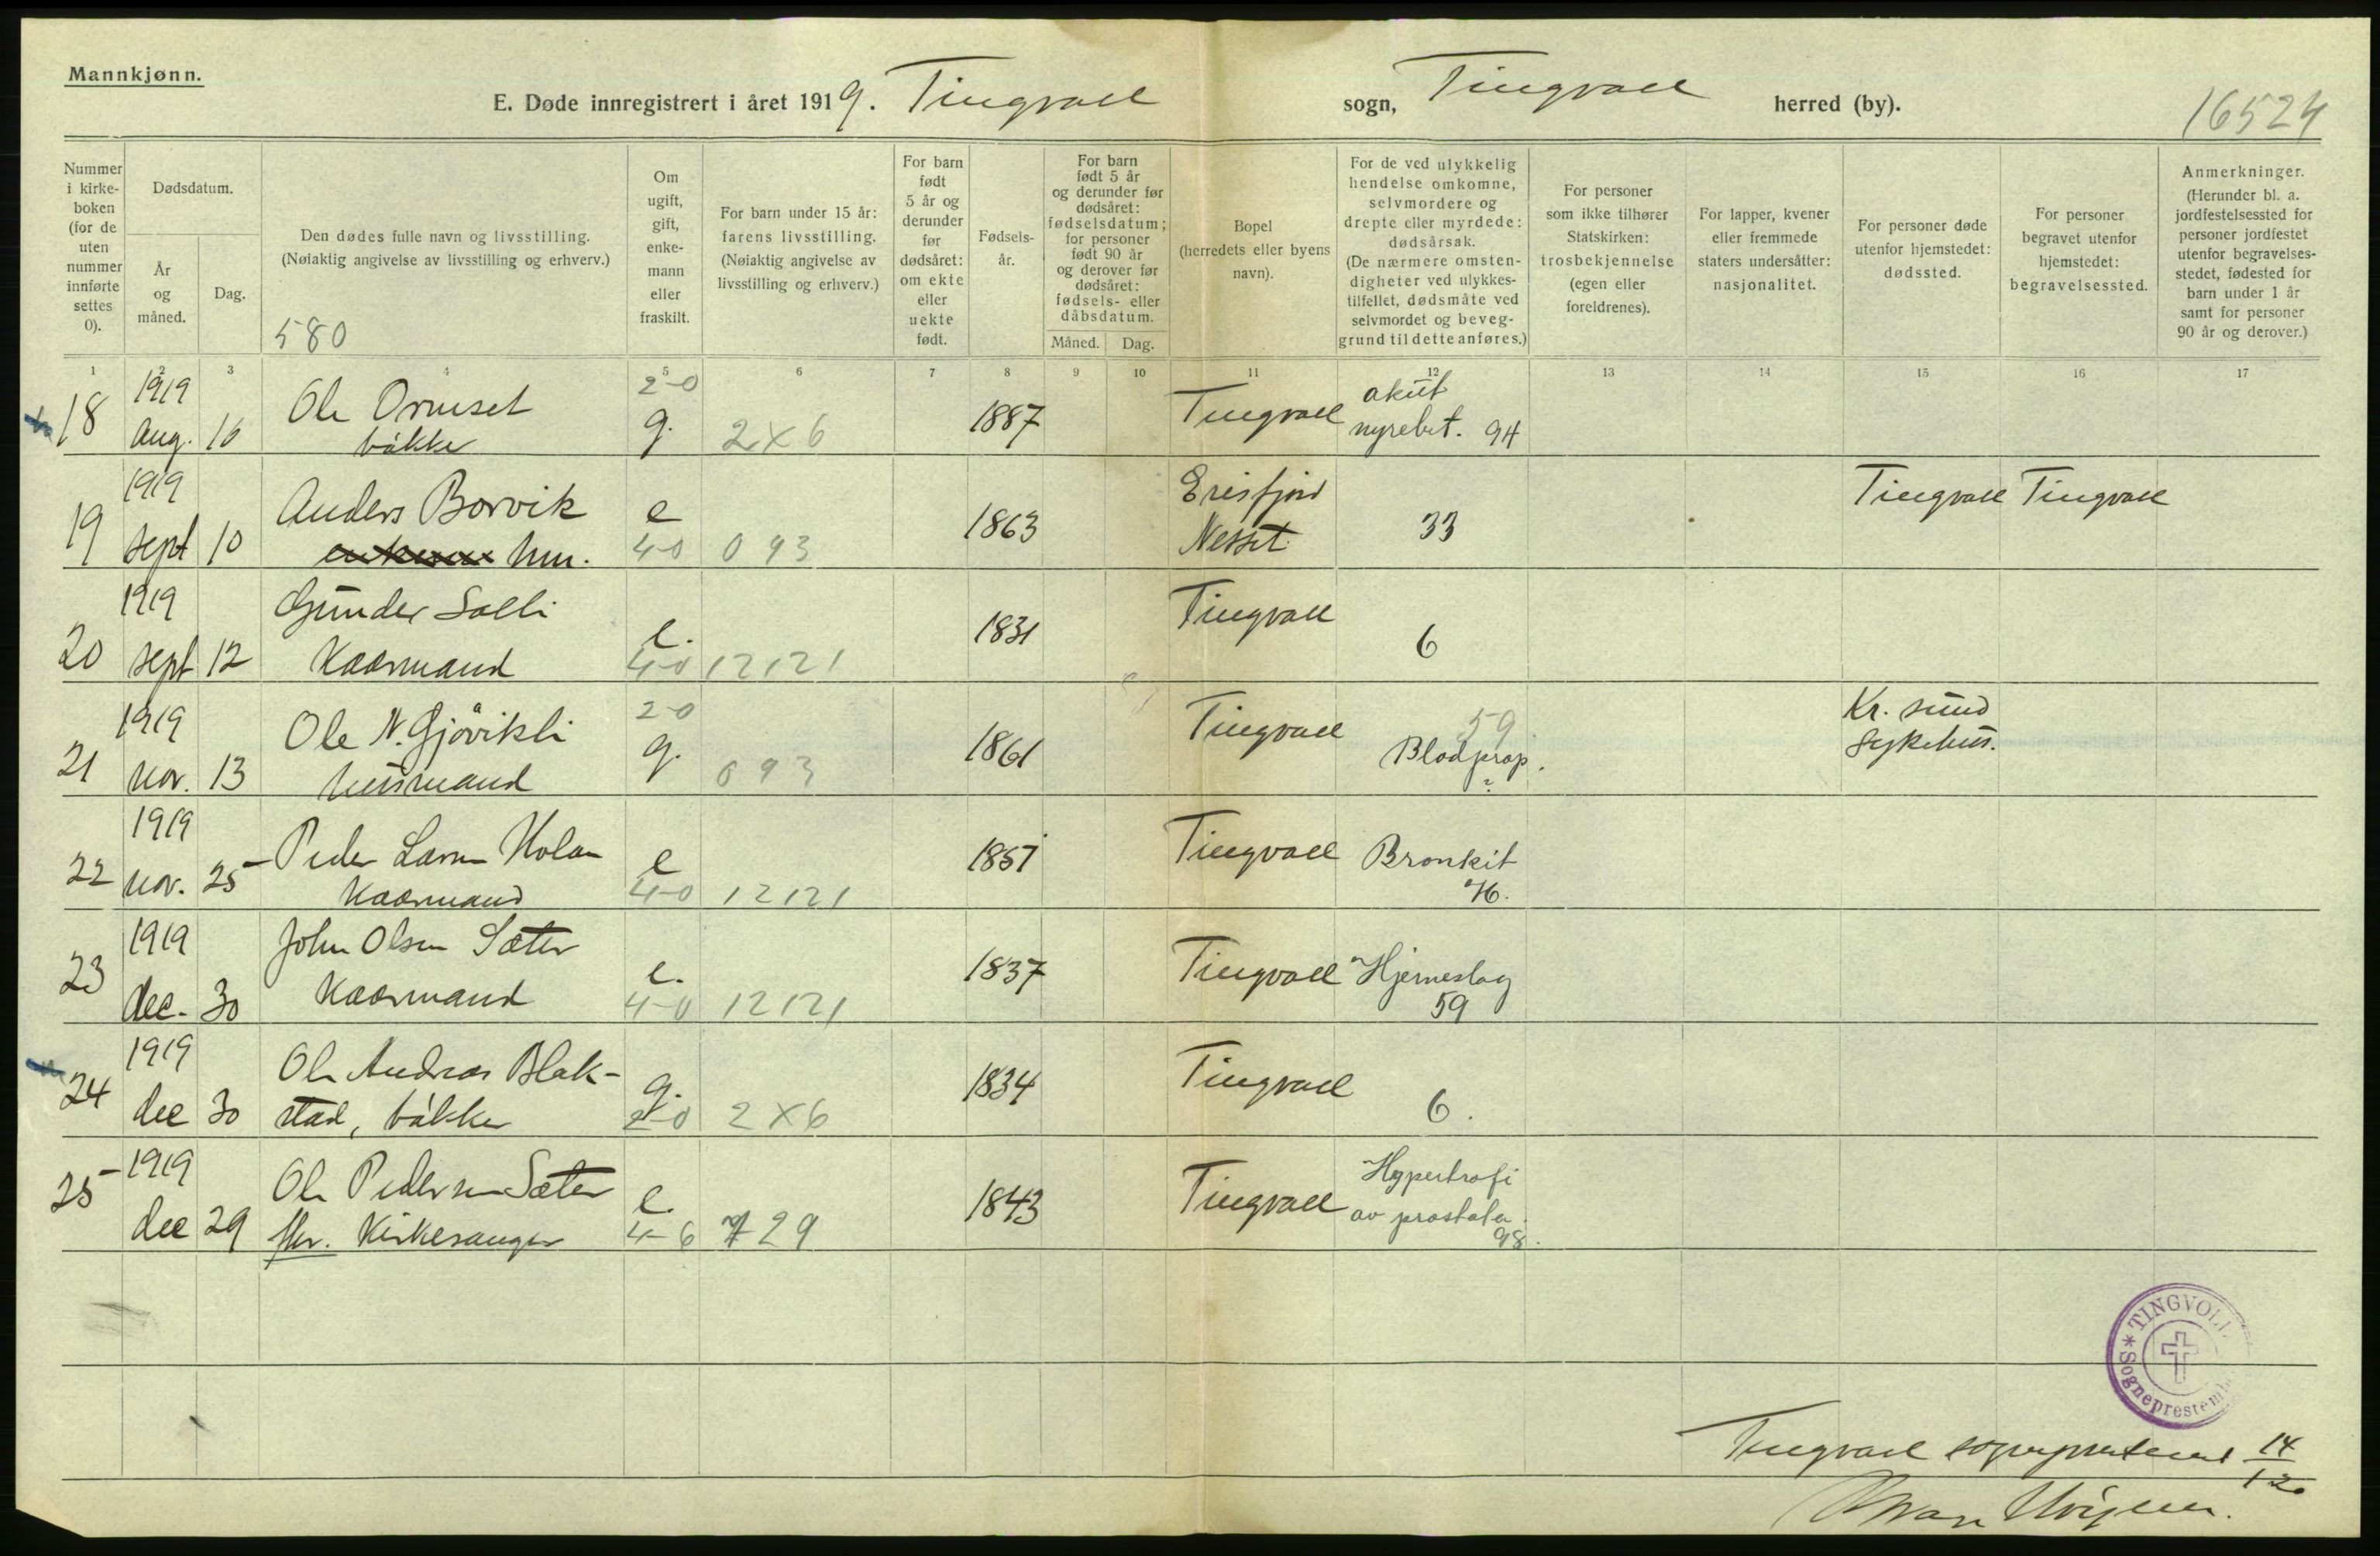 Mannkjønn.
E. Døde innregistrert i året 1919. Tingvoll sogn, Tingvoll herred (by).
16524
Nummer i kirke- boken (for de uten nummer innførte settes 0).
Dødsdatum.
År og måned.
Dag.
Den dødes fulle navn og livsstilling.
(Nøiaktig angivelse av livsstilling og erhverv.)
580
Om ugift, gift, enke- mann eller fraskilt.
For barn under 15 år: farens livsstilling. (Nøiaktig angivelse av livsstilling og erhverv.)
For barn født 5 år og derunder før dødsåret: om ekte eller uekte født.
Fødsels- år.
For barn født 5 år og derunder før dødsåret: fødselsdatum; for personer født 90 år og derover før dødsåret: fødsels- eller dåbsdatum.
Måned. Dag.
Bopel (herredets eller byens navn).
For de ved ulykkelig hendelse omkomne, selvmordere og drepte eller myrdede: dødsårsak. (De nærmere omsten- digheter ved ulykkes- tilfellet, dødsmåte ved selvmordet og beveg- grund til dette anføres.)
For personer som ikke tilhører Statskirken: trosbekjennelse (egen eller foreldrenes).
For lapper, kvener eller fremmede staters undersåtter: nasjonalitet.
For personer døde utenfor hjemstedet: dødssted.
For personer begravet utenfor hjemstedet: begravelsessted.
Anmerkninger. (Herunder bl. a. jordfestelsessted for personer jordfestet utenfor begravelses- stedet, fødested for barn under 1 år samt for personer 90 år og derover.)
1 2 3 4 5 6 7 8 9 10 11 12 13 14 15 16 17
18 1919 Aug. 16 Ole Ormset 2-0 g. 2X6 1887 Tingvoll akut nyrebet. 94
19 1919 sept 10 Anders Borvik hm. e 4-0 093 1863 Erisfjord Nesset 33 Tingvoll Tingvoll
20 1919 sept 12 Gunder Solli Kaarmand e. 4-0 12121 1831 Tingvoll 6
21 1919 nov. 13 Ole N. Gjøvikli husmand 2-0 g. 093 1861 Tingvoll 59 Blodprop. Kr. sund Sykehus.
22 1919 nov. 25 Peder Larsen Holan Kaarmand e 4-0 12121 Tingvoll Bronkit
23 1919 dec. 30 John Olsen Sæter Kaarmand e. 4-0 12121 1837 Tingvoll Hjerneslag 59
24 1919 dec 30 Ole Andreas Blak- stad, g. 2-0 2X6 1834 Tingvoll 6.
25 1919 dec 29 Ole Pedersen Sæter fhv. Kirkesanger e. 4-6 729 1843 Tingvoll Hypertrofi av prostata. 98.
TINGVOLL * Sogneprestemb
Tingvoll sogneprestembed 14/1 20